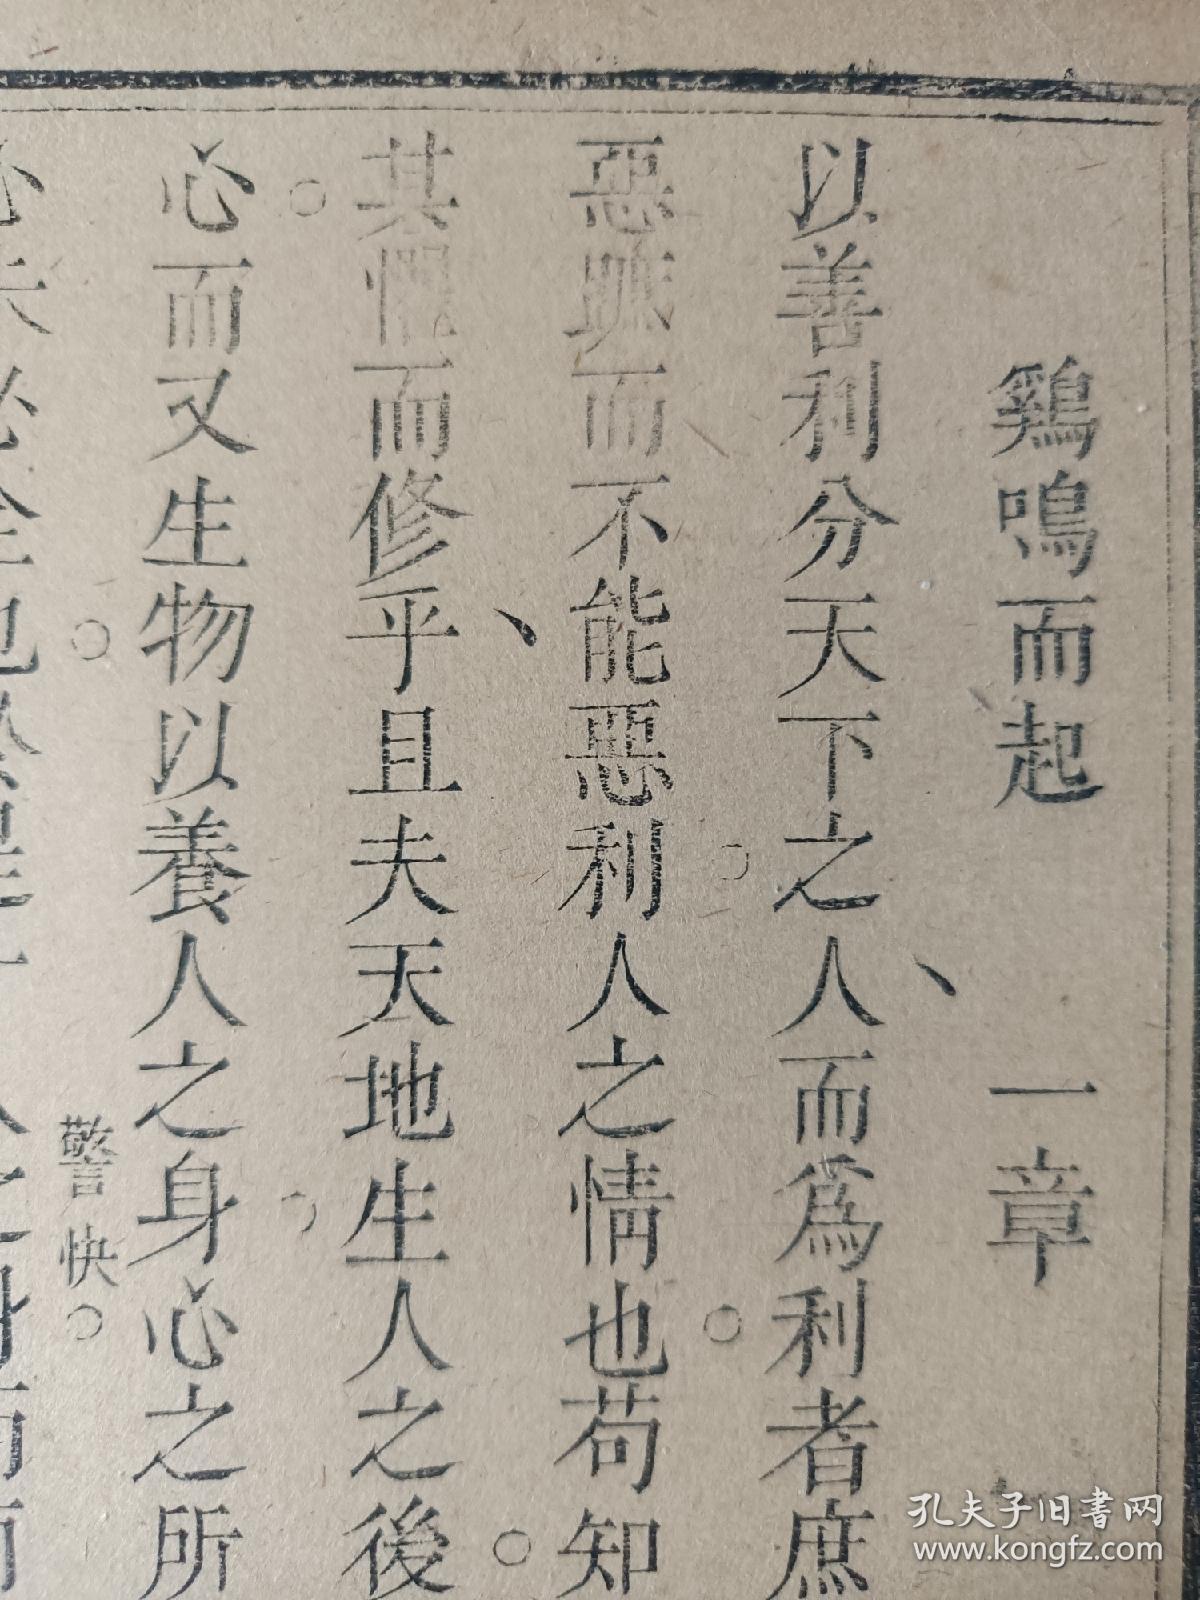 鷄鳴而起　一章
以善利分天下之人而爲利者庶
惡蹠而不能惡利人之情也苟知
其惧而修乎且夫天地生人之後
心而又生物以養人之身心之所
警快
孔夫子旧书网
www.kongfz.com